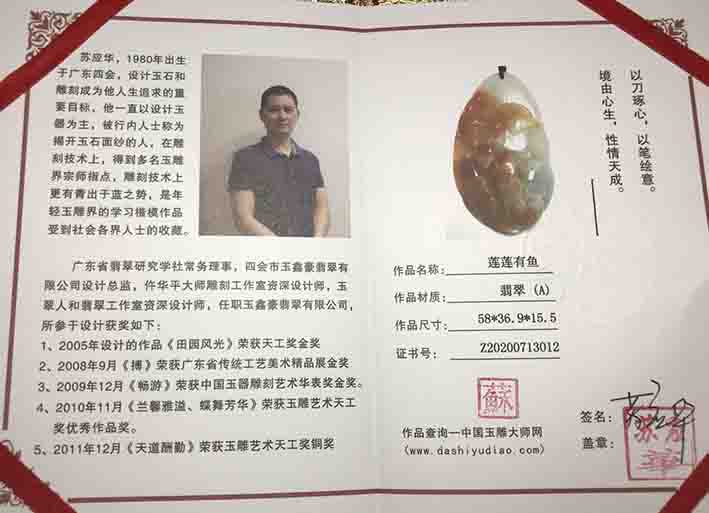 苏应华，1980年出生
于广东四会，设计玉石和
雕刻成为他人生追求的重
要目标，他一直以设计玉
器为主，被行内人士称为
揭开玉石面纱的人，在雕
刻技术上，得到多名玉雕
界宗师指点，雕刻技术上
更有青出于蓝之势，是年
轻玉雕界的学习楷模作品
受到社会各界人士的收藏。
广东省翡翠研究学社常务理事，四会市玉鑫豪翡翠有
限公司设计总监，仵华平大师雕刻工作室资深设计师，玉
翠人和翡翠工作室资深设计师，任职玉鑫豪翡翠有限公司，
所参于设计获奖如下：
1、2005年设计的作品《田园风光》荣获天工奖金奖
2、2008年9月《搏》荣获广东省传统工艺美术精品展金奖
3、2009年12月《畅游》荣获中国玉器雕刻艺术华表奖金奖。
4、2010年11月《兰馨雅溢、蝶舞芳华》荣获玉雕艺术天工
奖优秀作品奖。
5、2011年12月《天道酬勤》荣获玉雕艺术天工奖铜奖
以刀琢心，以笔绘意。
境由心生，性情天成。
作品名称：莲莲有鱼
作品材质：翡翠 (A)
作品尺寸：58*36.9*15.5
证书号：Z20200713012
蘇
作品查询—中国玉雕大师网
(www.dashiyudiao.com)
签名：苏应华
盖章：苏应华